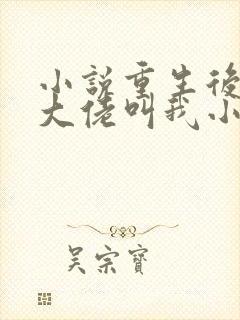 小説重生後
大佬叫我小
吴宗寶